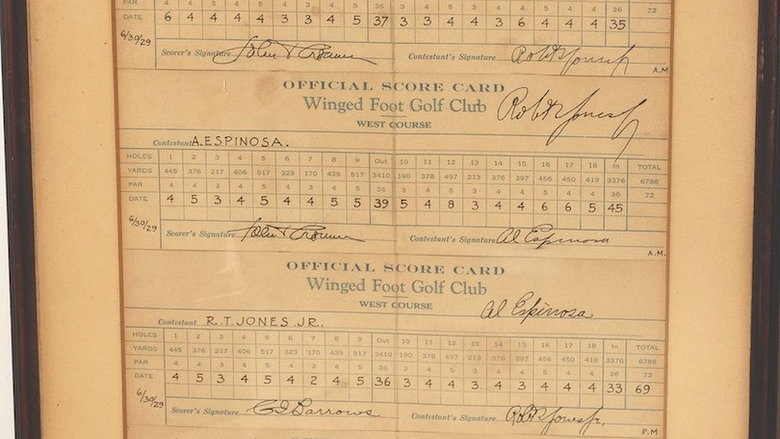 PAR 4 4 3 4 5 4 3 4 5 36 3 4 5 3 4 4 5 4 4 36 72
DATE 6 4 4 4 4 3 3 4 5 37 3 3 4 4 3 6 4 4 4 35
6/30/29
Scorer's Signature Contestant's Signature Robt T Jones Jr A.M
OFFICIAL SCORE CARD
Winged Foot Golf Club Robt T Jones Jr
WEST COURSE
Contestant A. ESPINOSA.
HOLES 1 2 3 4 5 6 7 8 9 Out 10 11 12 13 14 15 16 17 18 In TOTAL
YARDS 445 376 217 406 517 323 170 439 517 3410 190 378 497 213 376 396 456 450 419 3376 6786
PAR 4 4 3 4 5 4 3 4 5 36 3 4 5 3 4 4 5 4 4 36 72
DATE 4 5 3 4 5 4 4 5 5 39 5 4 8 3 4 4 6 6 5 45
6/30/29
Scorer's Signature Contestant's Signature Al Espinosa A.M.
OFFICIAL SCORE CARD
Winged Foot Golf Club Al Espinosa
WEST COURSE
Contestant R. T. JONES. JR.
HOLES 1 2 3 4 5 6 7 8 9 Out 10 11 12 13 14 15 16 17 18 In TOTAL
YARDS 445 376 217 406 517 323 170 439 517 3410 190 378 497 213 376 396 456 450 419 3376 6786
PAR 4 4 3 4 5 4 3 4 5 36 3 4 5 3 4 4 5 4 4 36 72
DATE 4 5 3 4 5 4 2 4 5 36 3 4 4 3 4 3 4 4 4 33 69
6/30/29
Scorer's Signature Barrows Contestant's Signature Robt T Jones Jr. P.M